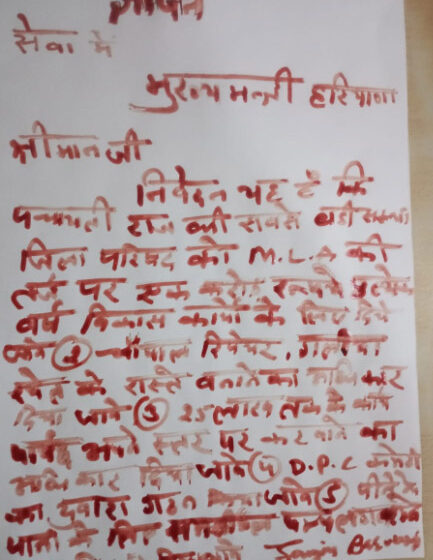 ज्ञापन
सेवा में
मुख्य मन्त्री हरियाणा
श्रीमान जी
निवेदन यह है कि
पंचायती राज की सबसे बडी संस्था
जिला परिषद को M.L.A की
तर्ज पर एक करोड़ रुपये प्रत्येक
वर्ष विकास कार्यो के लिए दिये
जाये ② चौपाल रिपेयर, गलीया
खेत के रास्ते बनाने का अधिकार
दिया जाये ③ 25 लाख तक के कार्य
पार्षद अपने स्तर पर करवाने का
अधिकार दिया जाये ④ D.P.C कमेटी
का दुबारा गठन किया जाये ⑤ पीने के
पानी के लिए